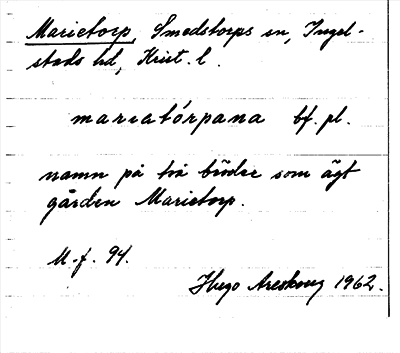 Marietorp, Smedstorps sn, Ingel-
stads hd, Krist. l.
mariatórpana bf. pl.
namn på två bröder som ägt
gården Marietorp.
M-f. 94.
Hugo Areskoug 1962.